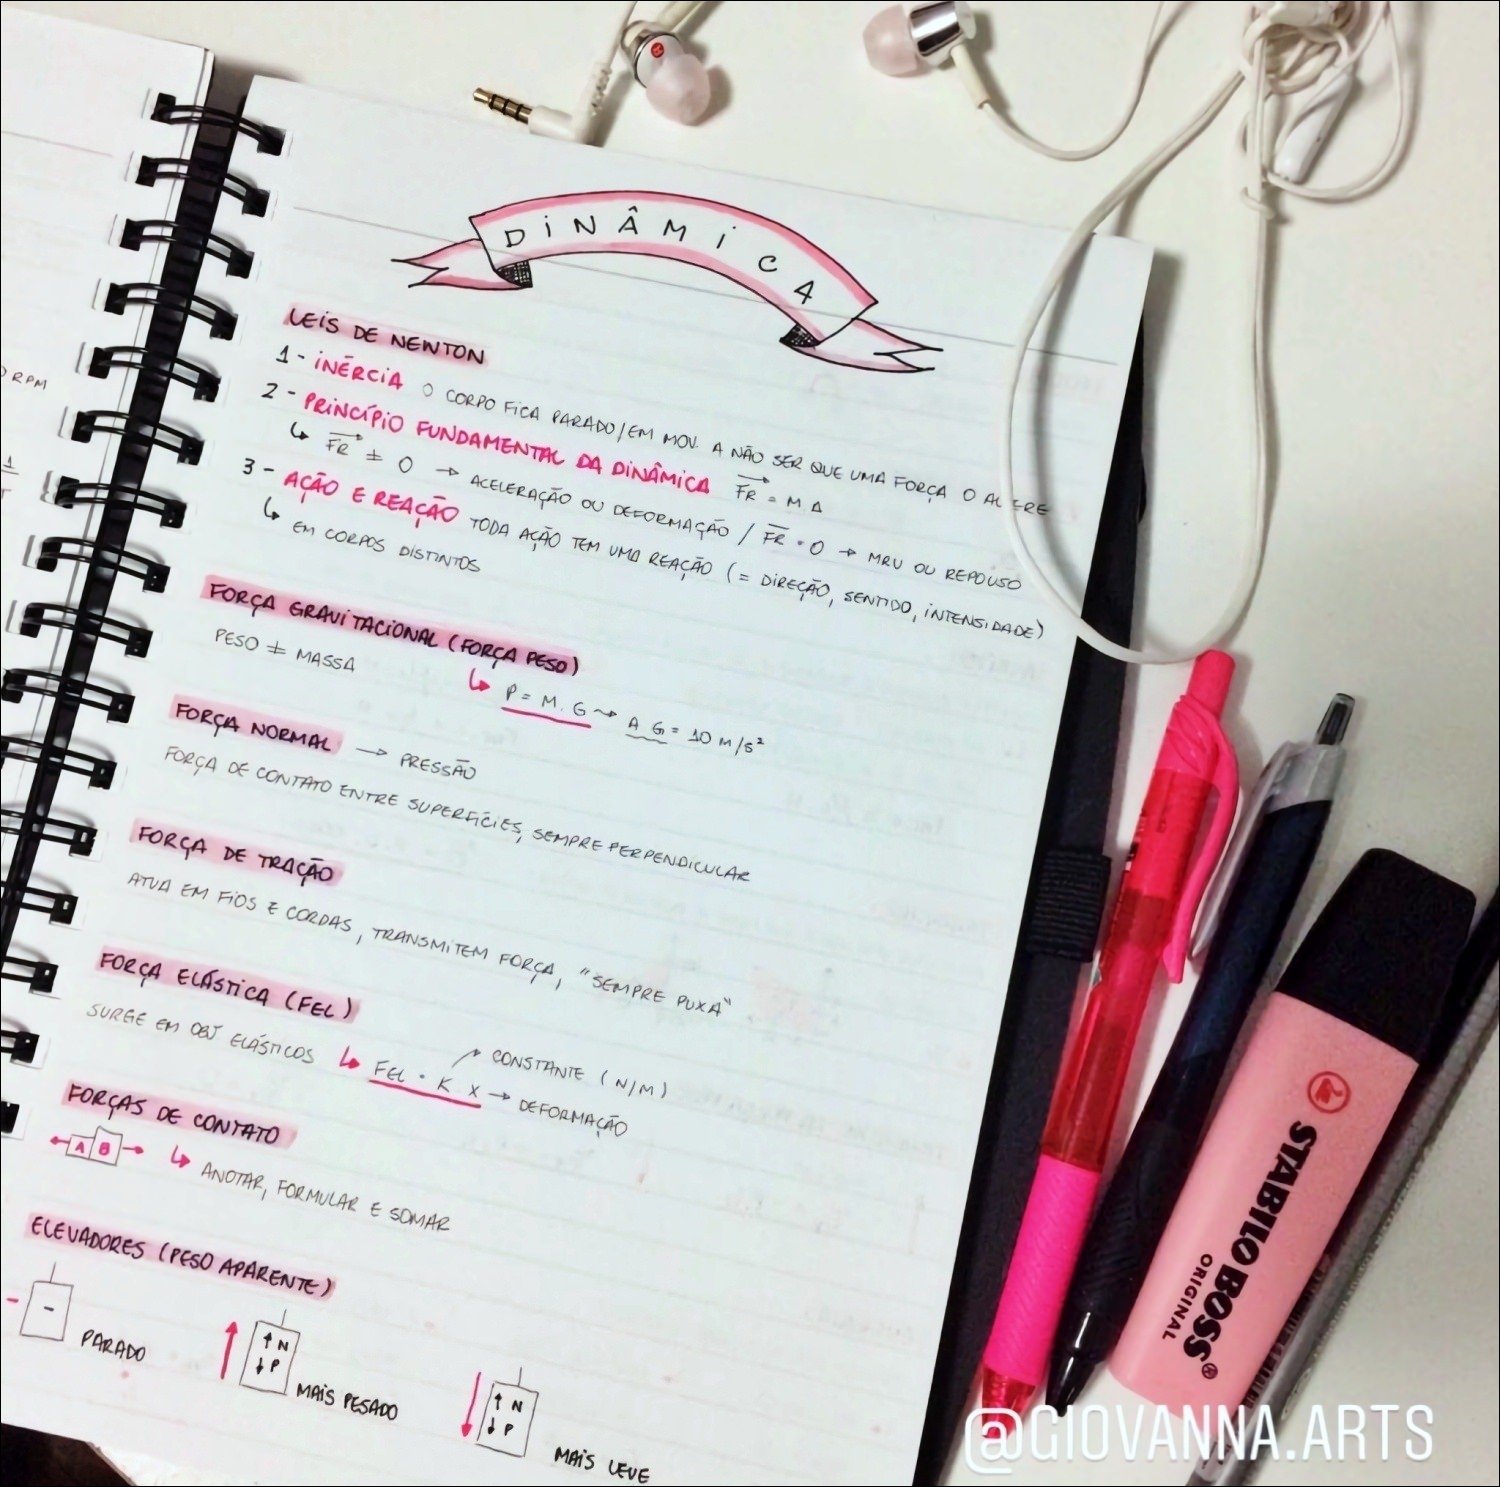 DINÂMICA
LEIS DE NEWTON
1 - INÉRCIA O CORPO FICA PARADO/EM MOV. A NÃO SER QUE UMA FORÇA O ALTERE
2 - PRINCÍPIO FUNDAMENTAL DA DINÂMICA FR = M A
↳ FR ≠ 0 → ACELERAÇÃO OU DEFORMAÇÃO / FR = 0 → MRU OU REPOUSO
3 - AÇÃO E REAÇÃO TODA AÇÃO TEM UMA REAÇÃO (= DIREÇÃO, SENTIDO, INTENSIDADE)
↳ EM CORPOS DISTINTOS
FORÇA GRAVITACIONAL (FORÇA PESO)
PESO ≠ MASSA ↳ P = M . G → A G = 10 M/S²
FORÇA NORMAL → PRESSÃO
FORÇA DE CONTATO ENTRE SUPERFÍCIES, SEMPRE PERPENDICULAR
FORÇA DE TRAÇÃO
ATUA EM FIOS E CORDAS, TRANSMITEM FORÇA, "SEMPRE PUXA"
FORÇA ELÁSTICA (FEL)
SURGE EM OBJ ELÁSTICOS ↳ FEL = K X → CONSTANTE (N/M)
→ DEFORMAÇÃO
FORÇAS DE CONTATO
A B ↳ ANOTAR, FORMULAR E SOMAR
ELEVADORES (PESO APARENTE)
- - PARADO
↑ ↑ N
↓ P MAIS PESADO
↓ ↑ N
↓ P MAIS LEVE
RPM
1
STABILO BOSS®
ORIGINAL
@GIOVANNA.ARTS